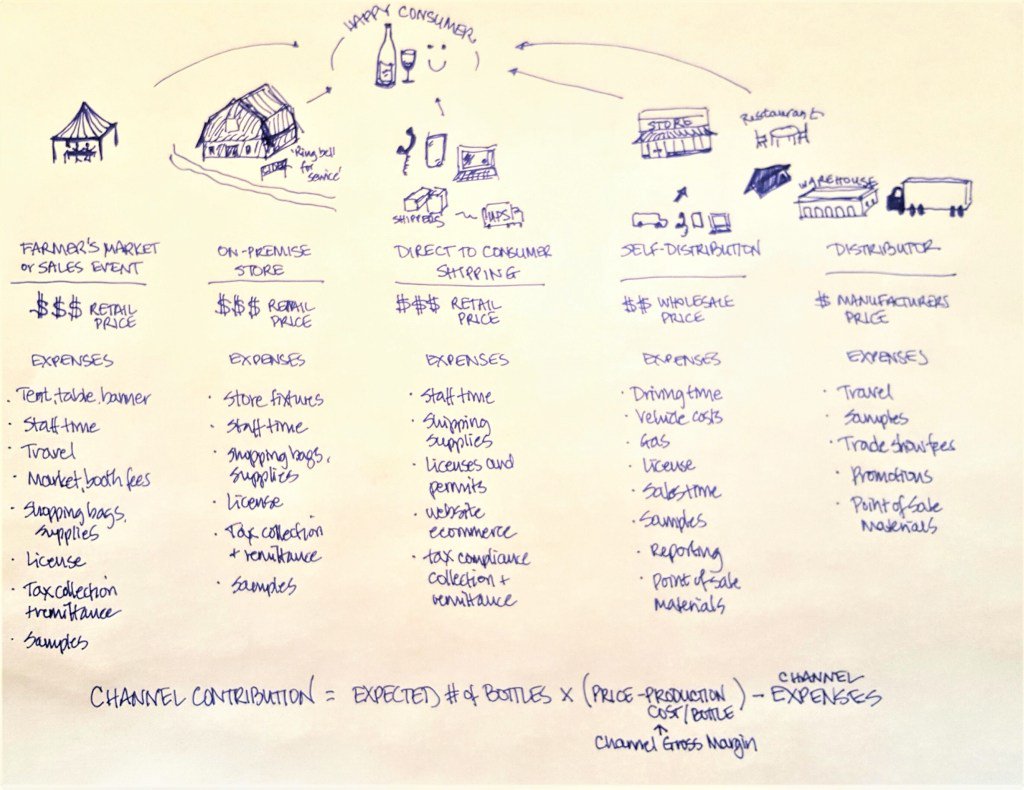 HAPPY CONSUMER
CIDER
"Ring bell
for
service"
SHIPPERS
UPS
STORE
Restaurant
WAREHOUSE
FARMER'S MARKET
or SALES EVENT
$$$ RETAIL
PRICE
EXPENSES
· Tent, table, banner
· Staff time
· Travel
· Market, booth fees
· Shopping bags,
supplies
· License
· Tax collection
+ remittance
· Samples
ON-PREMISE
STORE
$$$ RETAIL
PRICE
EXPENSES
· Store fixtures
· Staff time
· Shopping bags,
supplies
· License
· Tax collection
+ remittance
· Samples
DIRECT TO CONSUMER
SHIPPING
$$$ RETAIL
PRICE
EXPENSES
· Staff time
· Shipping
supplies
· Licenses and
permits
· Website
ecommerce
· tax compliance
collection +
remittance
SELF-DISTRIBUTION
$$ WHOLESALE
PRICE
EXPENSES
· Driving time
· Vehicle costs
· Gas
· License
· Sales time
· Samples
· Reporting
· Point of Sale
Materials
DISTRIBUTOR
$ MANUFACTURERS
PRICE
EXPENSES
· Travel
· Samples
· Trade show fees
· Promotions
· Point of Sale
Materials
CHANNEL CONTRIBUTION = EXPECTED # of BOTTLES x (PRICE - PRODUCTION COST/BOTTLE) - CHANNEL EXPENSES
Channel Gross Margin